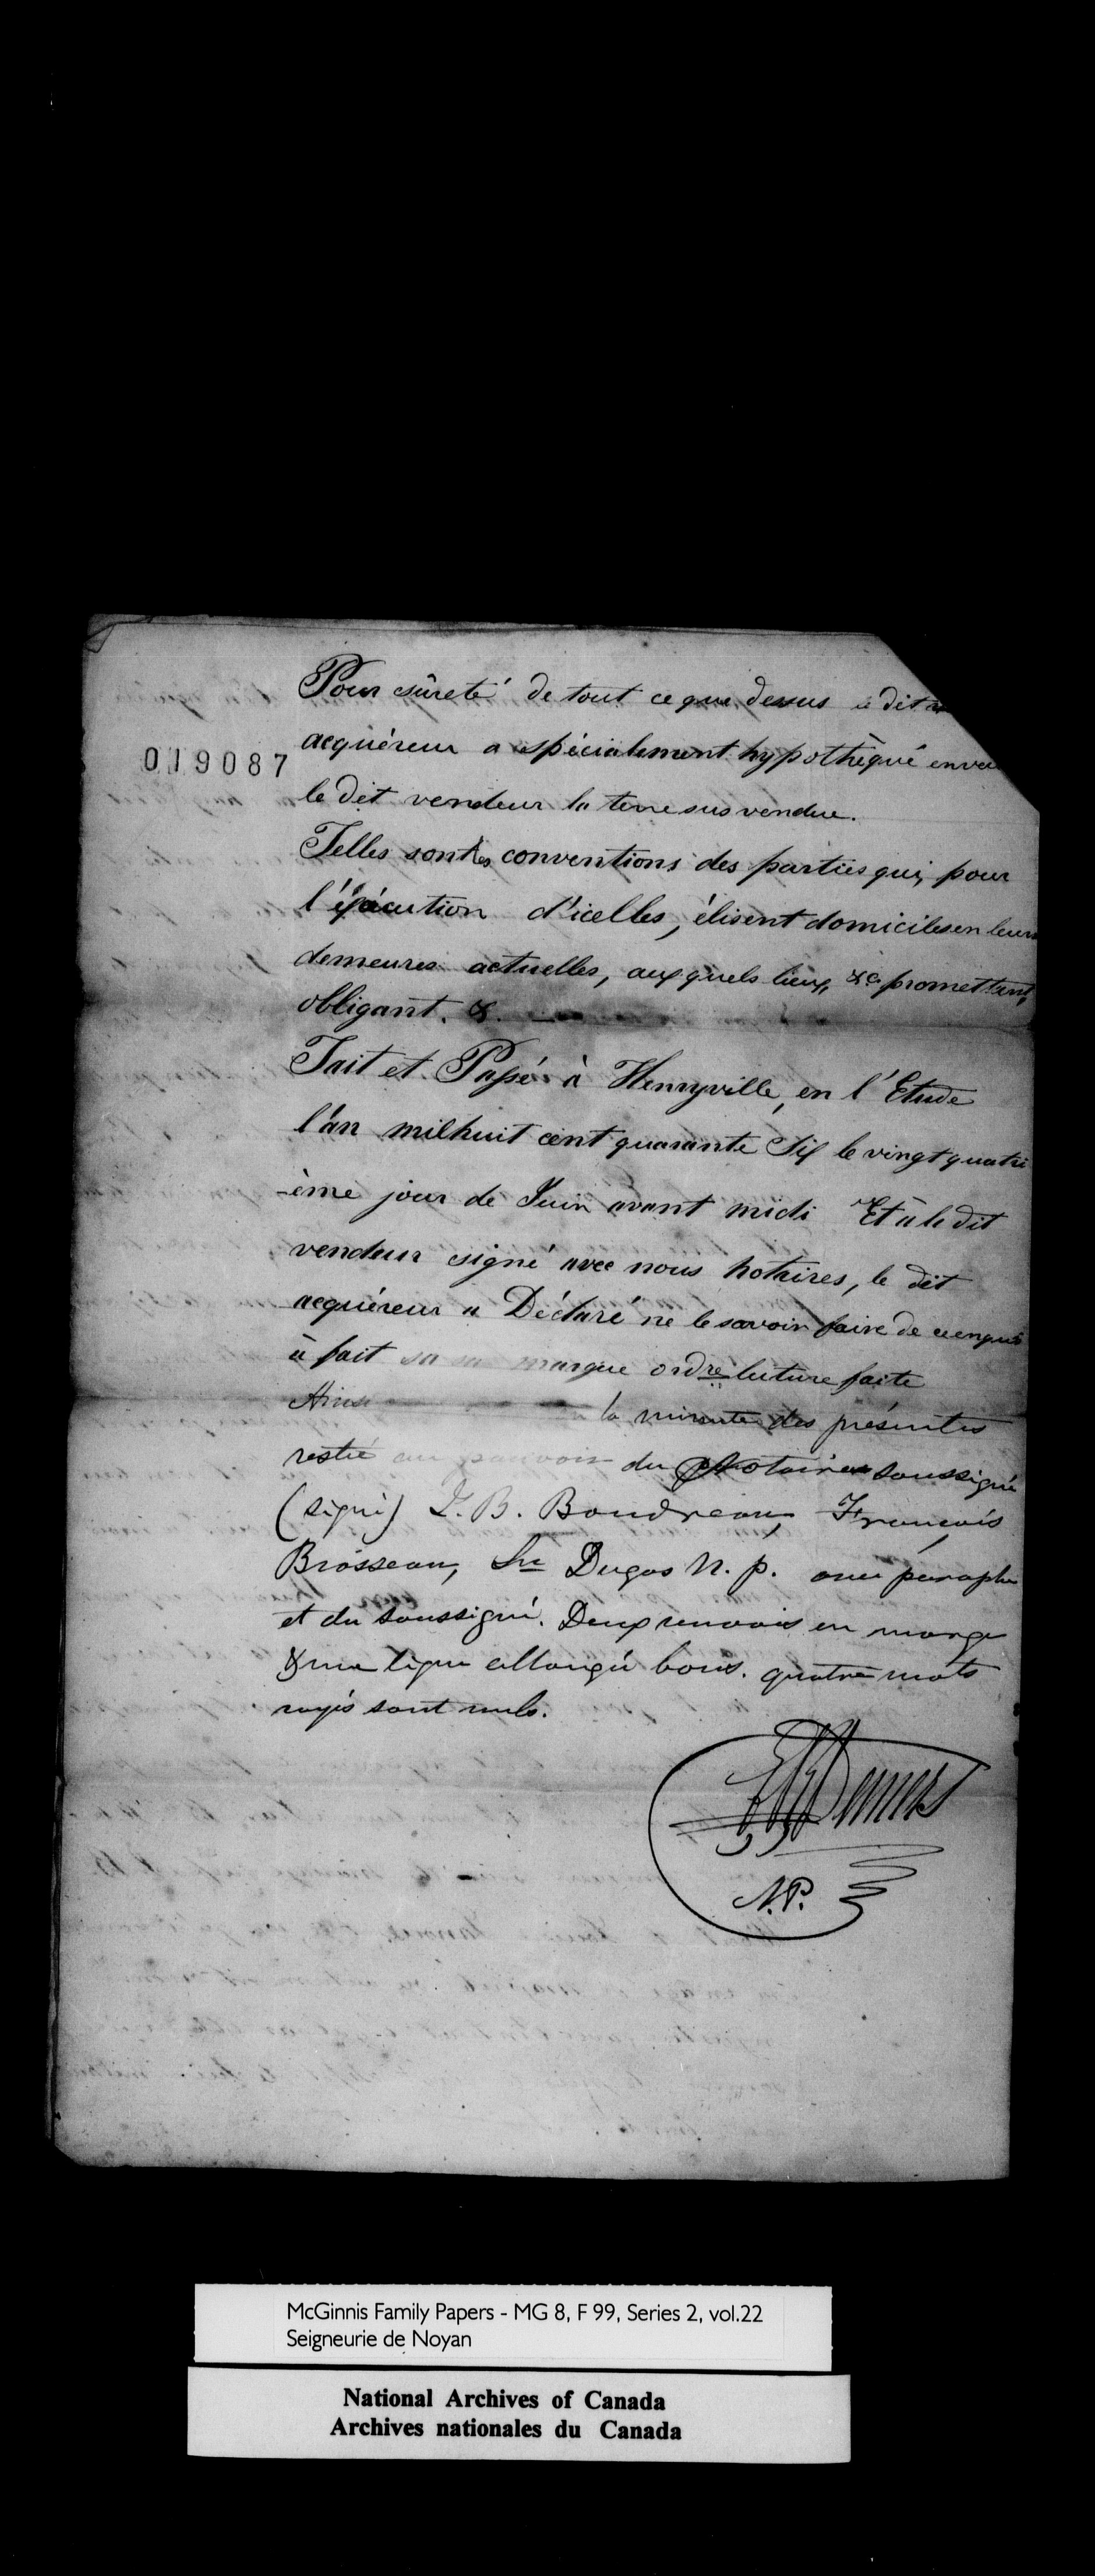 Pour sûreté de tout ce que dessus le dit
019087
acquéreur a spécialement hypothèqué enver
le dit vendeur la terre sus vendue.
Telles sont les conventions des parties qui, pour
l'éxécution d'icelles, élisent domiciles en leurs
demeures actuelles, auxquels lieux, &c promettant,
obligant. &.
Fait et Passé à Henryville, en l'Etude
l'an mil huit cent quarante Six le vingt quatri
-ème jour de Juin avant midi Et a le dit
vendeur signé avec nous notaires, le dit
acquéreur a Déclaré ne le savoir faire de ce enquis
à fait sa sa marque ordre lecture faite
Ainsi la minute des présentes
resté au pouvoir du Notaire soussigné
(signé) J. B. Boudreau, François
Brosseau, Dugas N. p. avec paraphe
et du soussigné. Deux renvois en marge
& une ligne allongée bons. quatre mots
rayés sont nuls.
N.P.
McGinnis Family Papers - MG 8, F 99, Series 2, vol.22
Seigneurie de Noyan
National Archives of Canada
Archives nationales du Canada